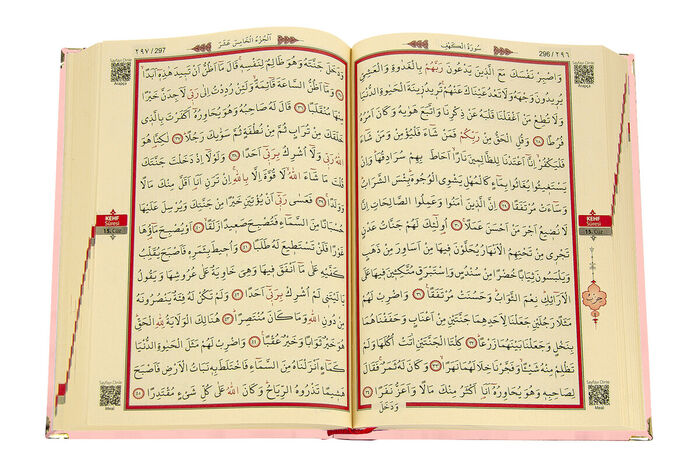 سُورَةُ الْكَهْفِ
296 / ٢٩٦
وَاصْبِرْ نَفْسَكَ مَعَ الَّذِينَ يَدْعُونَ رَبَّهُمْ بِالْغَدٰوةِ وَالْعَشِيِّ
يُرِيدُونَ وَجْهَهُ وَلَا تَعْدُ عَيْنَاكَ عَنْهُمْ تُرِيدُ زِينَةَ الْحَيٰوةِ الدُّنْيَا
وَلَا تُطِعْ مَنْ اَغْفَلْنَا قَلْبَهُ عَنْ ذِكْرِنَا وَاتَّبَعَ هَوٰيهُ وَكَانَ اَمْرُهُ
فُرُطًا ﴿٢٨﴾ وَقُلِ الْحَقُّ مِنْ رَبِّكُمْ فَمَنْ شَاءَ فَلْيُؤْمِنْ وَمَنْ شَاءَ
فَلْيَكْفُرْ اِنَّا اَعْتَدْنَا لِلظَّالِمِينَ نَارًا اَحَاطَ بِهِمْ سُرَادِقُهَا وَاِنْ
يَسْتَغِيثُوا يُغَاثُوا بِمَاءٍ كَالْمُهْلِ يَشْوِي الْوُجُوهَ بِئْسَ الشَّرَابُ
وَسَاءَتْ مُرْتَفَقًا ﴿٢٩﴾ اِنَّ الَّذِينَ اٰمَنُوا وَعَمِلُوا الصَّالِحَاتِ اِنَّا
لَا نُضِيعُ اَجْرَ مَنْ اَحْسَنَ عَمَلًا ﴿٣٠﴾ اُولٰئِكَ لَهُمْ جَنَّاتُ عَدْنٍ
تَجْرِي مِنْ تَحْتِهِمُ الْاَنْهَارُ يُحَلَّوْنَ فِيهَا مِنْ اَسَاوِرَ مِنْ ذَهَبٍ
وَيَلْبَسُونَ ثِيَابًا خُضْرًا مِنْ سُنْدُسٍ وَاِسْتَبْرَقٍ مُتَّكِـِٔينَ فِيهَا عَلَى
الْاَرَائِكِ نِعْمَ الثَّوَابُ وَحَسُنَتْ مُرْتَفَقًا ﴿٣١﴾ وَاضْرِبْ لَهُمْ
مَثَلًا رَجُلَيْنِ جَعَلْنَا لِاَحَدِهِمَا جَنَّتَيْنِ مِنْ اَعْنَابٍ وَحَفَفْنَاهُمَا
بِنَخْلٍ وَجَعَلْنَا بَيْنَهُمَا زَرْعًا ﴿٣٢﴾ كِلْتَا الْجَنَّتَيْنِ اٰتَتْ اُكُلَهَا وَلَمْ
تَظْلِمْ مِنْهُ شَيْـًٔا وَفَجَّرْنَا خِلَالَهُمَا نَهَرًا ﴿٣٣﴾ وَكَانَ لَهُ ثَمَرٌ فَقَالَ
لِصَاحِبِهِ وَهُوَ يُحَاوِرُهُ اَنَا اَكْثَرُ مِنْكَ مَالًا وَاَعَزُّ نَفَرًا ﴿٣٤﴾
وَدَخَلَ
Sayfayı Dinle
Arapça
KEHF
Sûresi
15. Cüz
حزب
Sayfayı Dinle
Meal
اَلْجُزْءُ الْخَامِسُ عَشَرَ
٢٩٧ / 297
وَدَخَلَ جَنَّتَهُ وَهُوَ ظَالِمٌ لِنَفْسِهِ قَالَ مَا اَظُنُّ اَنْ تَبِيدَ هٰذِهِ اَبَدًا
﴿٣٥﴾ وَمَا اَظُنُّ السَّاعَةَ قَائِمَةً وَلَئِنْ رُدِدْتُ اِلٰى رَبِّي لَاَجِدَنَّ خَيْرًا
مِنْهَا مُنْقَلَبًا ﴿٣٦﴾ قَالَ لَهُ صَاحِبُهُ وَهُوَ يُحَاوِرُهُ اَكَفَرْتَ بِالَّذِي
خَلَقَكَ مِنْ تُرَابٍ ثُمَّ مِنْ نُطْفَةٍ ثُمَّ سَوّٰيكَ رَجُلًا ﴿٣٧﴾ لٰكِنَّا هُوَ
اللّٰهُ رَبِّي وَلَا اُشْرِكُ بِرَبِّي اَحَدًا ﴿٣٨﴾ وَلَوْلَا اِذْ دَخَلْتَ جَنَّتَكَ
قُلْتَ مَا شَاءَ اللّٰهُ لَا قُوَّةَ اِلَّا بِاللّٰهِ اِنْ تَرَنِ اَنَا اَقَلَّ مِنْكَ مَالًا
وَوَلَدًا ﴿٣٩﴾ فَعَسٰى رَبِّي اَنْ يُؤْتِيَنِ خَيْرًا مِنْ جَنَّتِكَ وَيُرْسِلَ عَلَيْهَا
حُسْبَانًا مِنَ السَّمَاءِ فَتُصْبِحَ صَعِيدًا زَلَقًا ﴿٤٠﴾ اَوْ يُصْبِحَ مَاؤُهَا
غَوْرًا فَلَنْ تَسْتَطِيعَ لَهُ طَلَبًا ﴿٤١﴾ وَاُحِيطَ بِثَمَرِهِ فَاَصْبَحَ يُقَلِّبُ
كَفَّيْهِ عَلٰى مَا اَنْفَقَ فِيهَا وَهِيَ خَاوِيَةٌ عَلٰى عُرُوشِهَا وَيَقُولُ
يَا لَيْتَنِي لَمْ اُشْرِكْ بِرَبِّي اَحَدًا ﴿٤٢﴾ وَلَمْ تَكُنْ لَهُ فِئَةٌ يَنْصُرُونَهُ
مِنْ دُونِ اللّٰهِ وَمَا كَانَ مُنْتَصِرًا ﴿٤٣﴾ هُنَالِكَ الْوَلَايَةُ لِلّٰهِ الْحَقِّ
هُوَ خَيْرٌ ثَوَابًا وَخَيْرٌ عُقْبًا ﴿٤٤﴾ وَاضْرِبْ لَهُمْ مَثَلَ الْحَيٰوةِ الدُّنْيَا
كَمَاءٍ اَنْزَلْنَاهُ مِنَ السَّمَاءِ فَاخْتَلَطَ بِهِ نَبَاتُ الْاَرْضِ فَاَصْبَحَ
هَشِيمًا تَذْرُوهُ الرِّيَاحُ وَكَانَ اللّٰهُ عَلٰى كُلِّ شَيْءٍ مُقْتَدِرًا ﴿٤٥﴾
Sayfayı Dinle
Arapça
KEHF
Sûresi
15. Cüz
Sayfayı Dinle
Meal